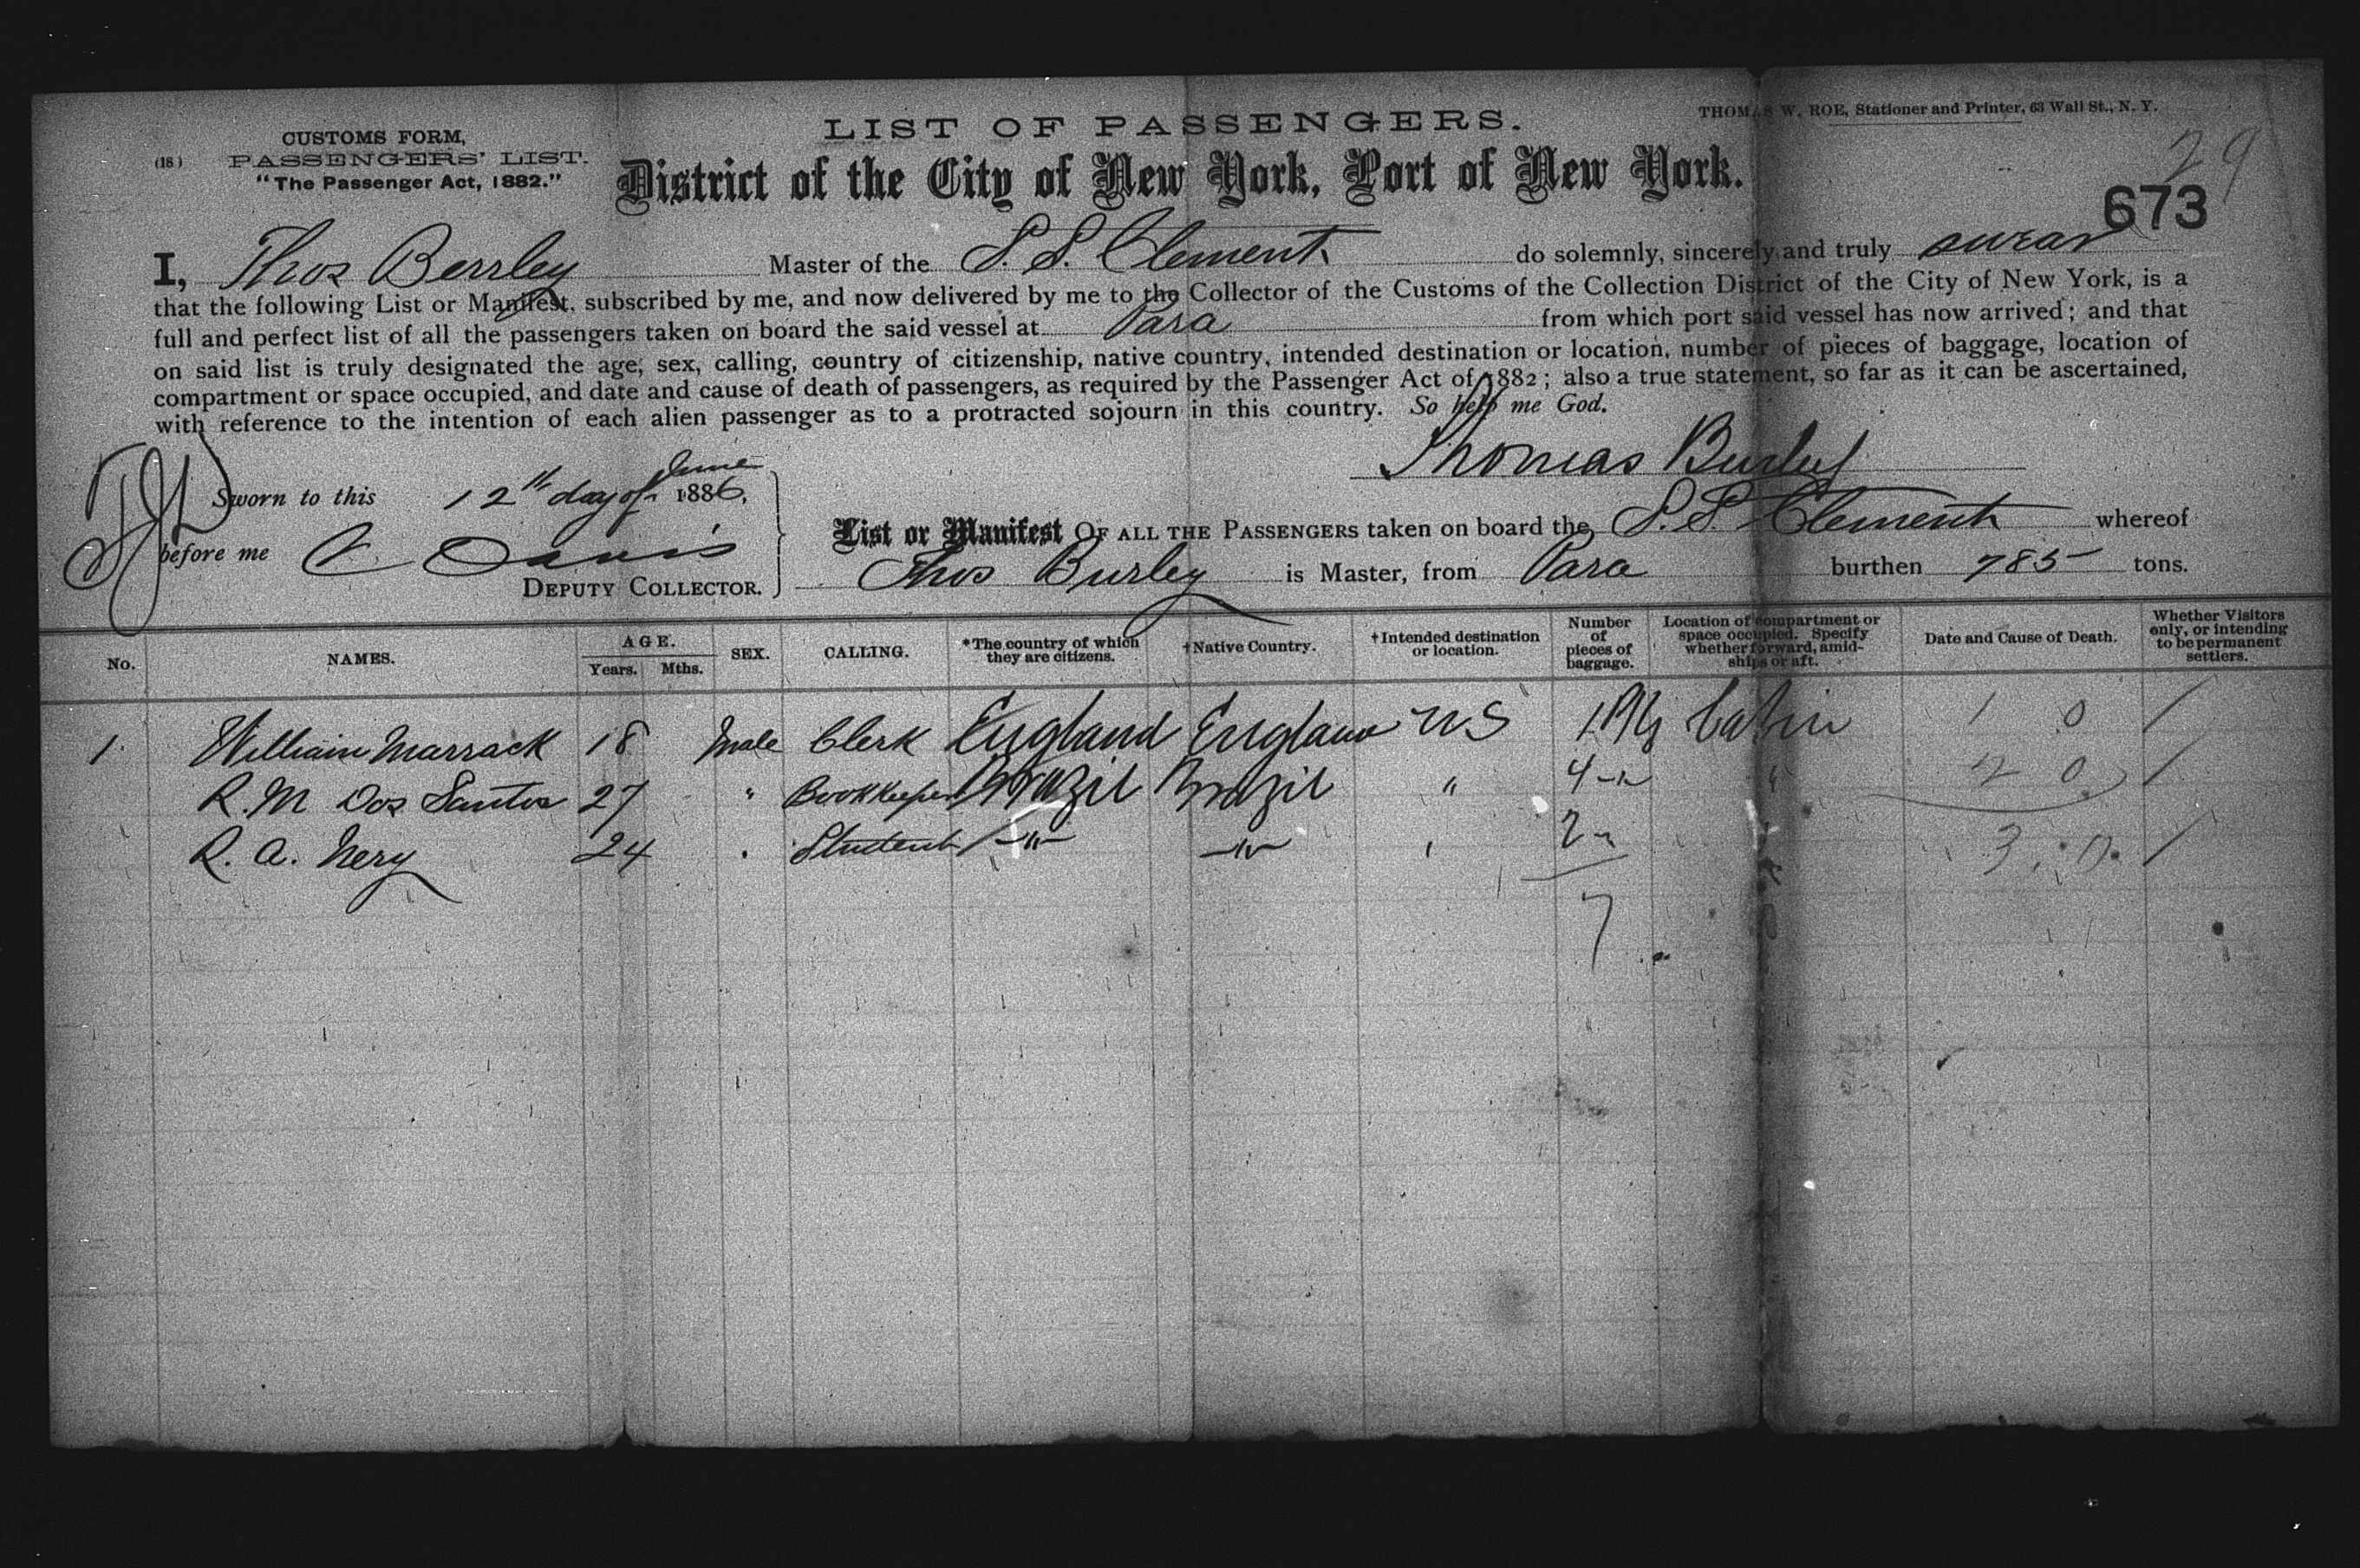 THOMAS W. ROE, Stationer and Printer, 63 Wall St., N. Y.
LIST OF PASSENGERS.
CUSTOMS FORM,
(18) PASSENGERS' LIST.
"The Passenger Act, 1882."
29
District of the City of New York, Port of New York.
673
I, Thos Berrley Master of the S. S. Clement do solemnly, sincerely and truly swear
that the following List or Manifest, subscribed by me, and now delivered by me to the Collector of the Customs of the Collection District of the City of New York, is a
full and perfect list of all the passengers taken on board the said vessel at Para from which port said vessel has now arrived; and that
on said list is truly designated the age, sex, calling, country of citizenship, native country, intended destination or location, number of pieces of baggage, location of
compartment or space occupied, and date and cause of death of passengers, as required by the Passenger Act of 1882; also a true statement, so far as it can be ascertained,
with reference to the intention of each alien passenger as to a protracted sojourn in this country. So help me God.
Thomas Burley
Sworn to this 12th day of June 1886,
before me Davis
DEPUTY COLLECTOR.
List or Manifest OF ALL THE PASSENGERS taken on board the S. S. Clement whereof
Thos Burley is Master, from Para burthen 785 tons.
No. NAMES. AGE. Years. Mths. SEX. CALLING. *The country of which they are citizens. †Native Country. †Intended destination or location. Number of pieces of baggage. Location of compartment or space occupied. Specify whether forward, amidships or aft. Date and Cause of Death. Whether Visitors only, or intending to be permanent settlers.
1 William Marrack 18 Male Clerk England England US 1 Pkg Cabin 1 0 /
R. M Dos Santos 27 " Bookkeeper Brazil Brazil " 4 " " 2 0 /
R. A. Nery 24 " Student " " " 2 " " 3 0 /
7